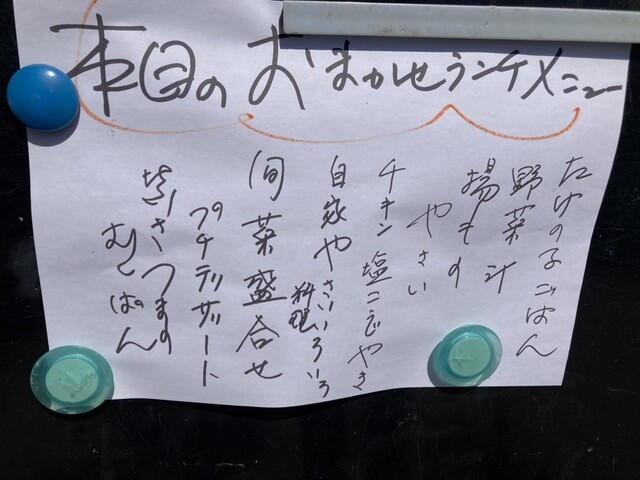 本日の おまかせランチメニュー
たけの子ごはん
野菜汁
揚もの
やさい
チキン塩こうじやき
自家やさいいろいろ
料理
旬菜盛合せ
プチデザート
さつまの
むしぱん